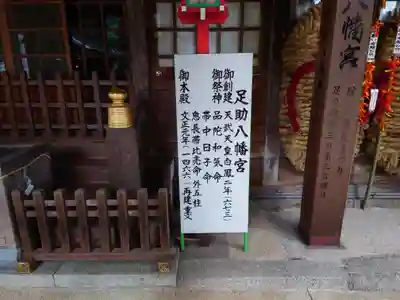 足助八幡宮
御創建 天武天皇白鳳二年(六七三)
御祭神 品陀和気命
帯中日子命
息長帯比売命・外五柱
御本殿 文正元年(一四六六)再建重文
八幡宮